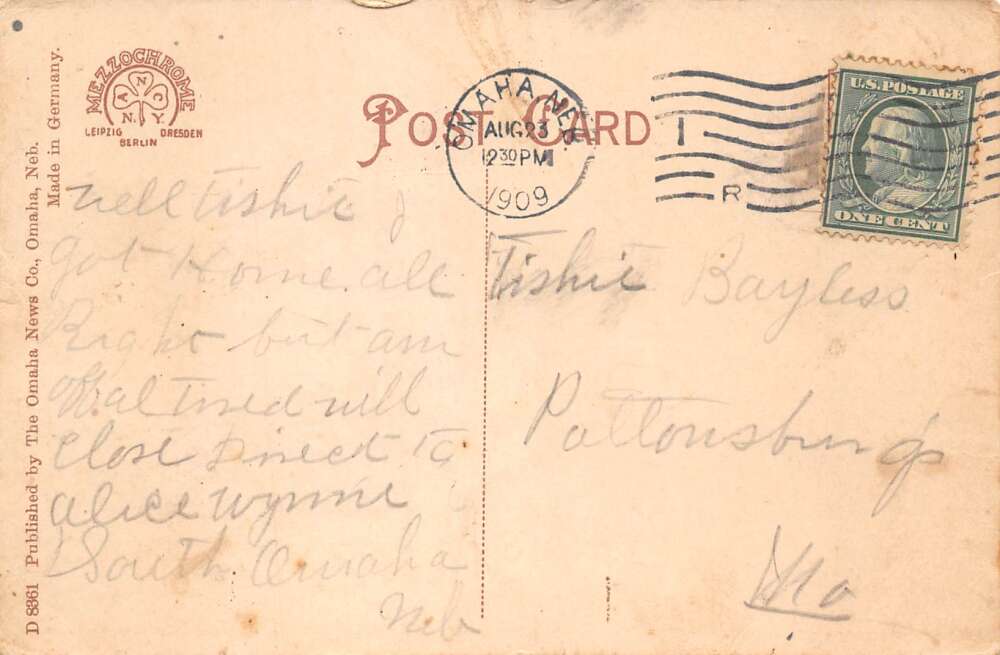 D 8361 Published by The Omaha News Co., Omaha, Neb.
Made in Germany.
MEZZOCHROME
A N C
N.Y.
LEIPZIG DRESDEN
BERLIN
POST CARD
OMAHA, NEB
AUG 23
12 30 PM
1909
I
R
U.S. POSTAGE
ONE CENT
well tishie I
got Home all
Right but am
offal tired will
Close Direct to
alice wynne
South Omaha
Neb
Tishie Bayless
Pattonsburg
Mo